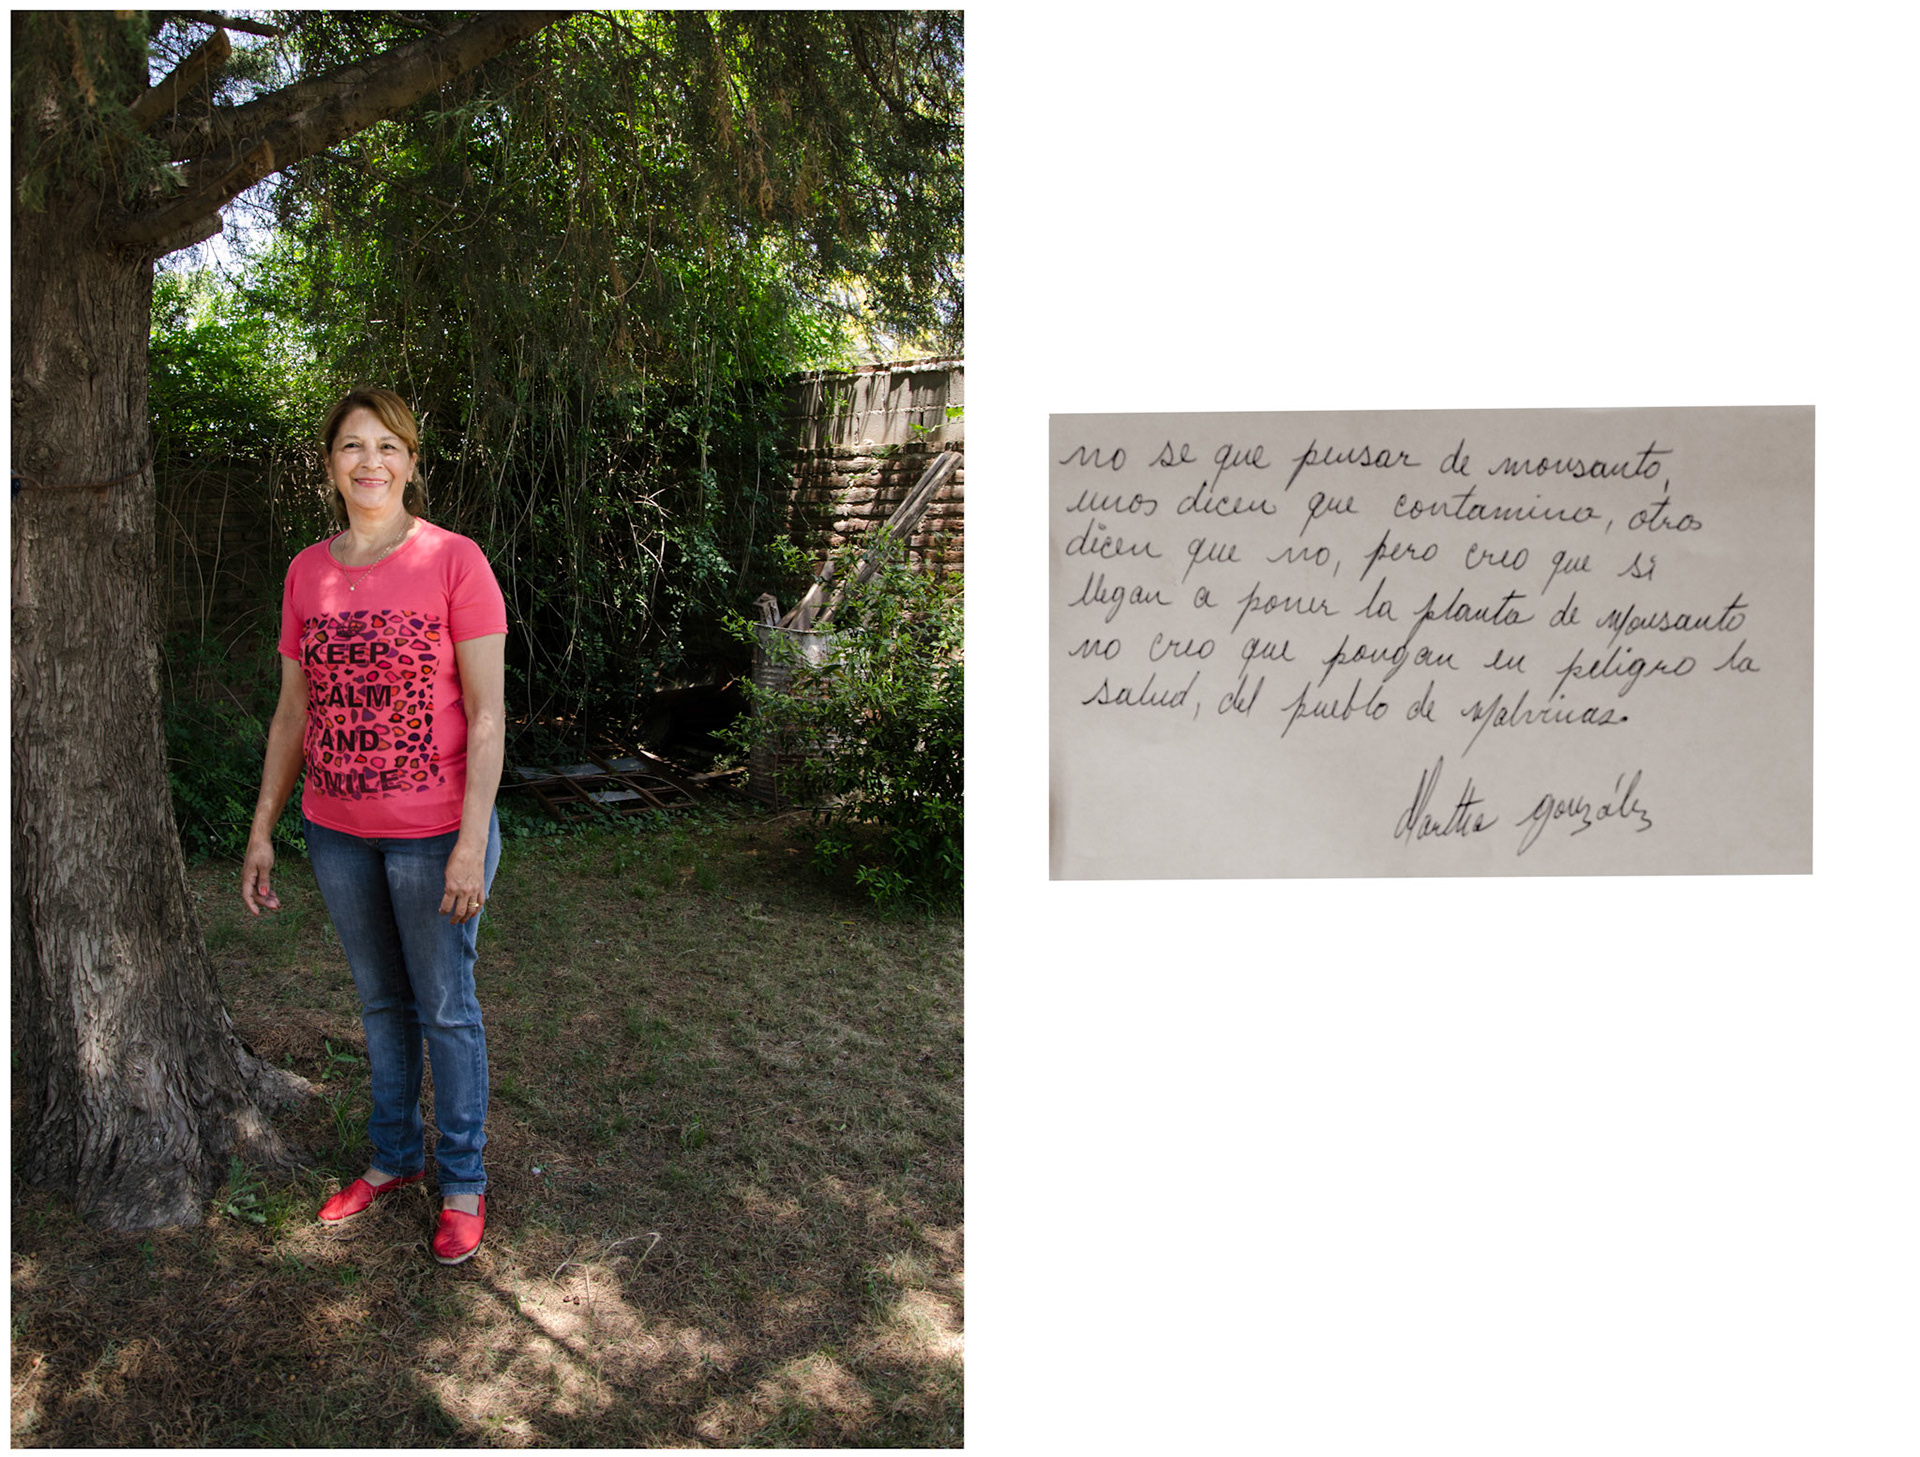 KEEP
CALM
AND
SMILE
no se que pensar de monsanto,
unos dicen que contamina, otros
dicen que no, pero creo que si
llegan a poner la planta de Monsanto
no creo que pongan en peligro la
salud, del pueblo de Malvinas.
Martha gonzález